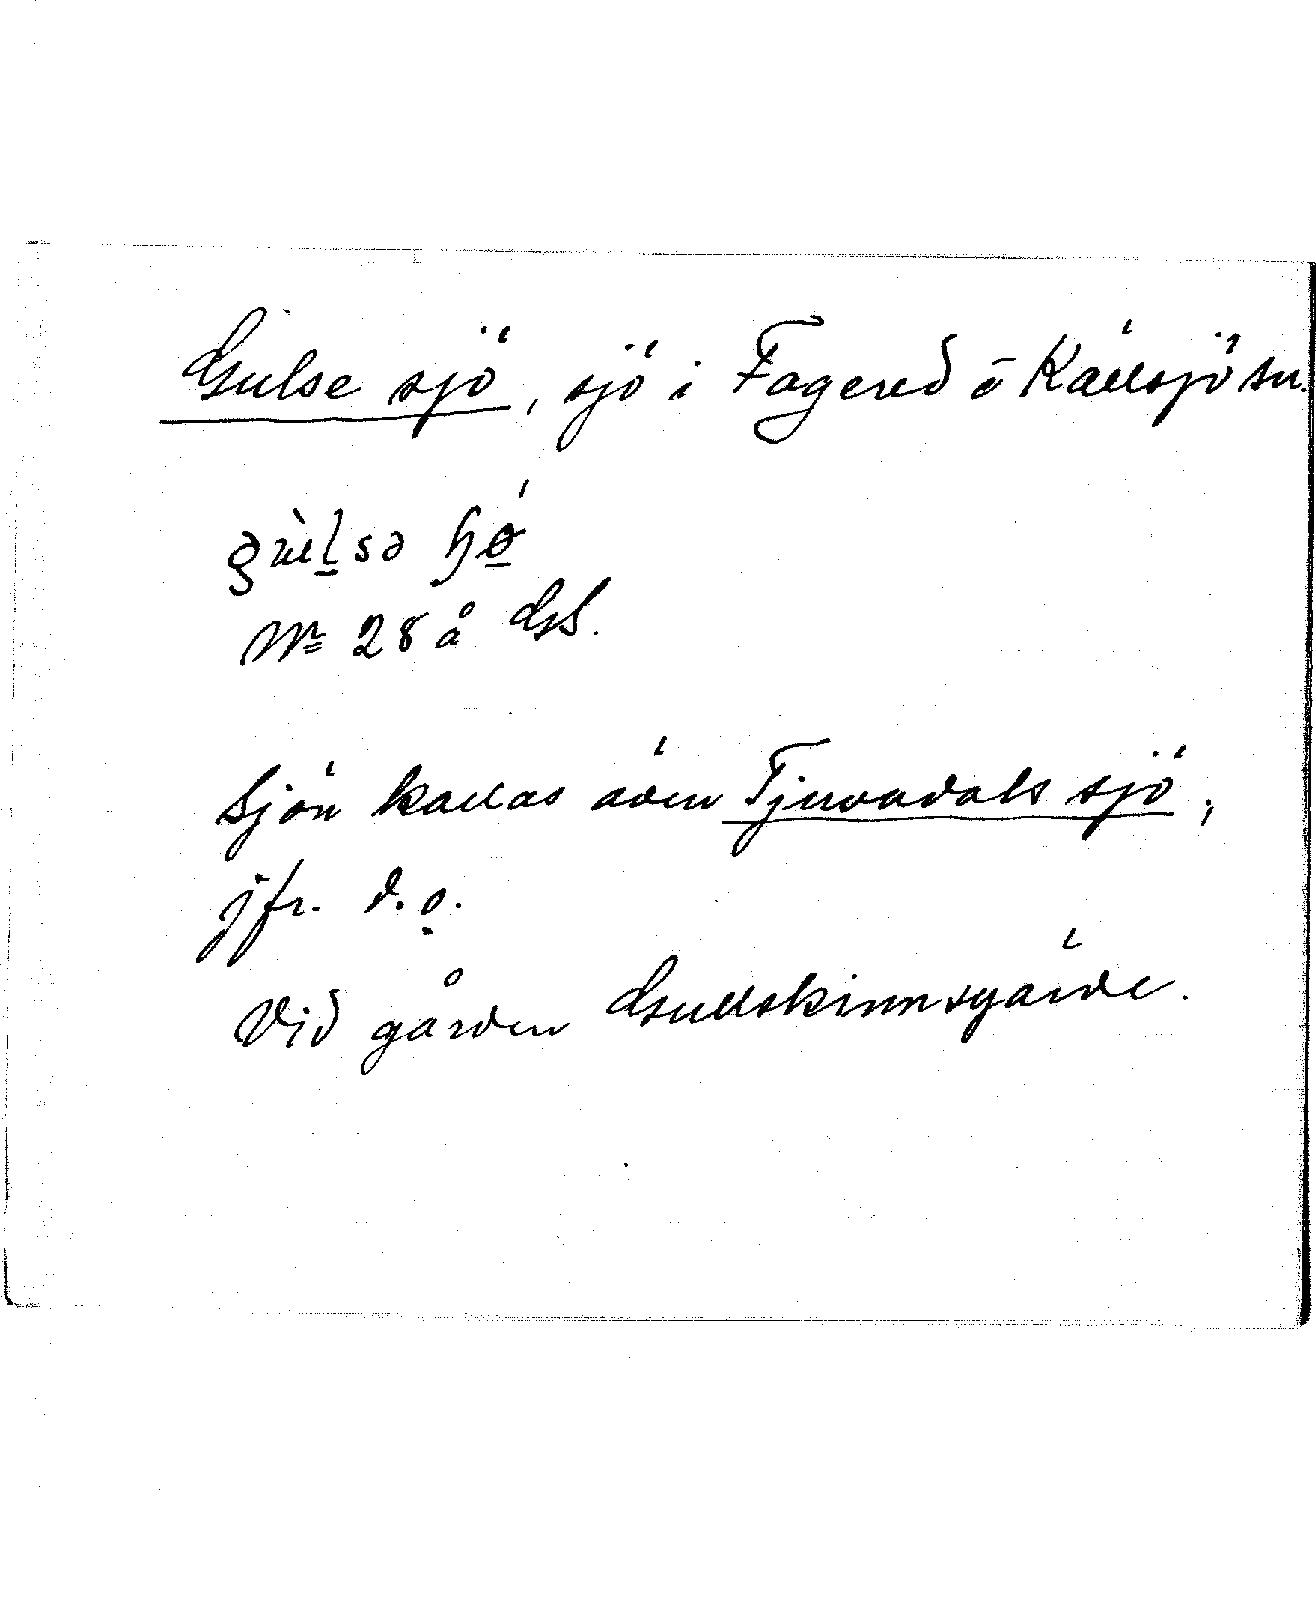 Gulse sjö, sjö i Fagered o Källsjö snr.
Nr 28 å GS.
Sjön kallas även Tjuvadals sjö,
jfr. d.o.
Vid gården Gullskinnsgärde.